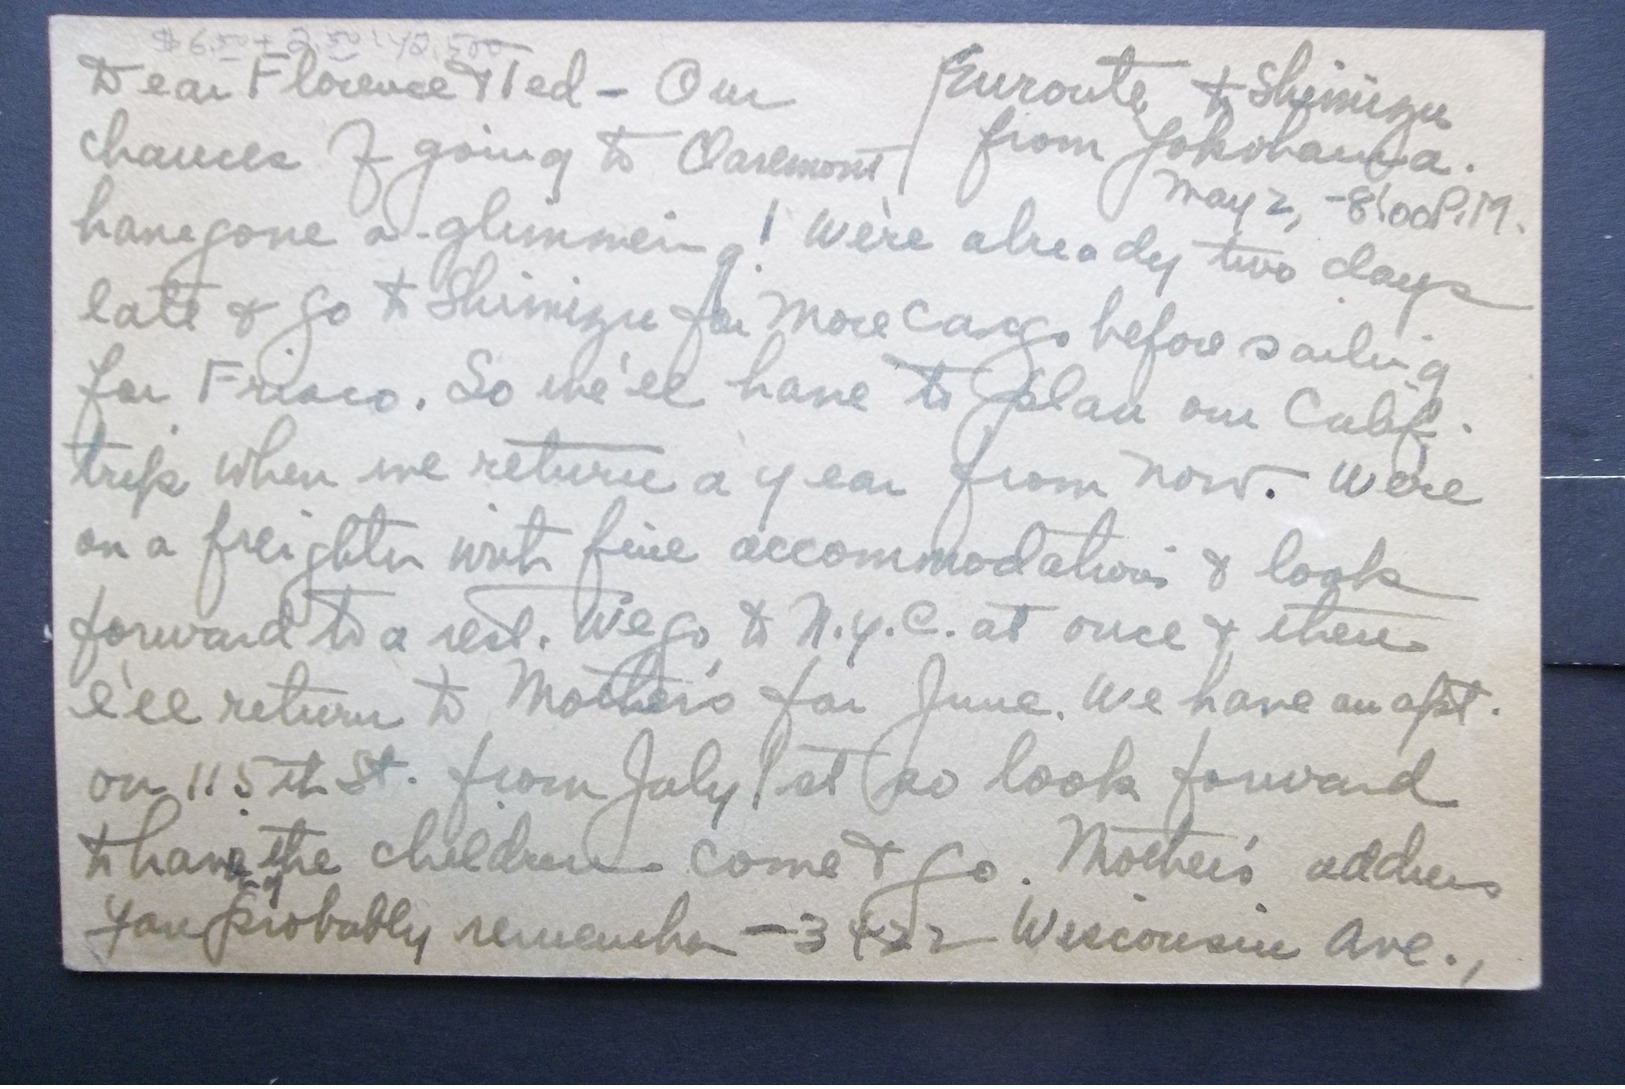 $6.50 + 2.50
Enroute to Shimizu
from Yokohama.
May 2, - 8:00 P.M.
Dear Florence & Ted - Our
chances of going to Claremont
have gone a-glimmering! We're already two days
late & go to Shimizu for more cargo before sailing
for Frisco. So we'll have to plan our Calif.
trip when we return a year from now. We're
on a freighter with fine accommodations & look
forward to a rest. We go to N.Y.C. at once & then
I'll return to Mother's for June. We have an apt.
on 115th St. from July 1st so look forward
to having the children come & go. Mother's address
you probably remember - 3422 Wisconsin Ave.,